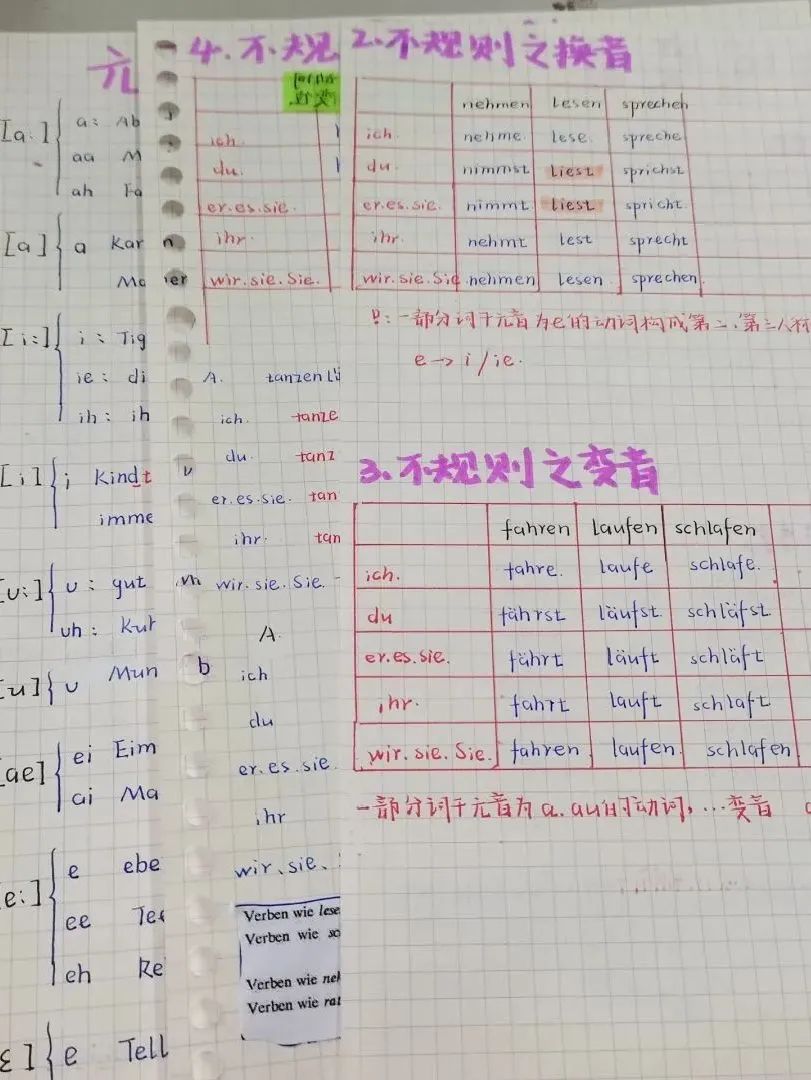 元
[a:] a: Ab
aa M
ah Fa
[a] a Kar
Ma
[i:] i: Tig
ie: di
ih: ih
[i] i Kindt
imme
[u:] u: gut
uh: Kur
[u] u Mun
[ae] ei Eim
ai Ma
[e:] e ebe
ee Tee
eh Re
[ε] e Tell
4.不规
ich.
du.
er.es.sie.
ihr.
wir.sie.Sie.
A. tanzen
ich. tanze
du. tanz
er.es.sie. tan
ihr. tan
wir.sie.Sie.
A.
ich
du
er.es.sie.
ihr
wir、sie、
Verben wie lese
Verben wie sc
Verben wie neh
Verben wie rat
2.不规则之换音
nehmen lesen sprechen
ich. nehme. lese. spreche
du. nimmst liest sprichst
er.es.sie. nimmt liest spricht
ihr. nehmt lest sprecht
wir.sie.Sie nehmen lesen sprechen.
一部分词干元音为e的动词构成第二、第三人称
e→i/ie.
3.不规则之变音
fahren laufen schlafen
ich. fahre. laufe schlafe.
du fährst läufst schläfst
er.es.sie. fährt läuft schläft
ihr. fahrt lauft schlaft
wir.sie.Sie. fahren laufen. schlafen
一部分词干元音为a.au的动词,…变音